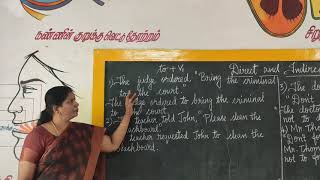 கண்ணின் குறுக்கு வெட்டு தோற்றம்
சிறு
to + V₁
Direct and Indirec
1) The judge ordered, "Bring the criminal
to the court."
The judge ordered to bring the criminal
to the court
2) The teacher told John, "Please clean the
blackboard."
teacher requested John to clean the
blackboard.
3) The do
"Don't
The doctor
not to
4) Mr. Thom
"Don't
Mr. Thoma
not to